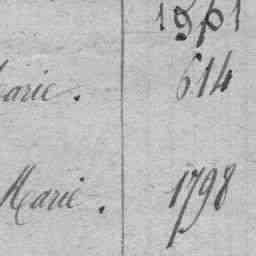 1961
arie. 614
Marie. 1798